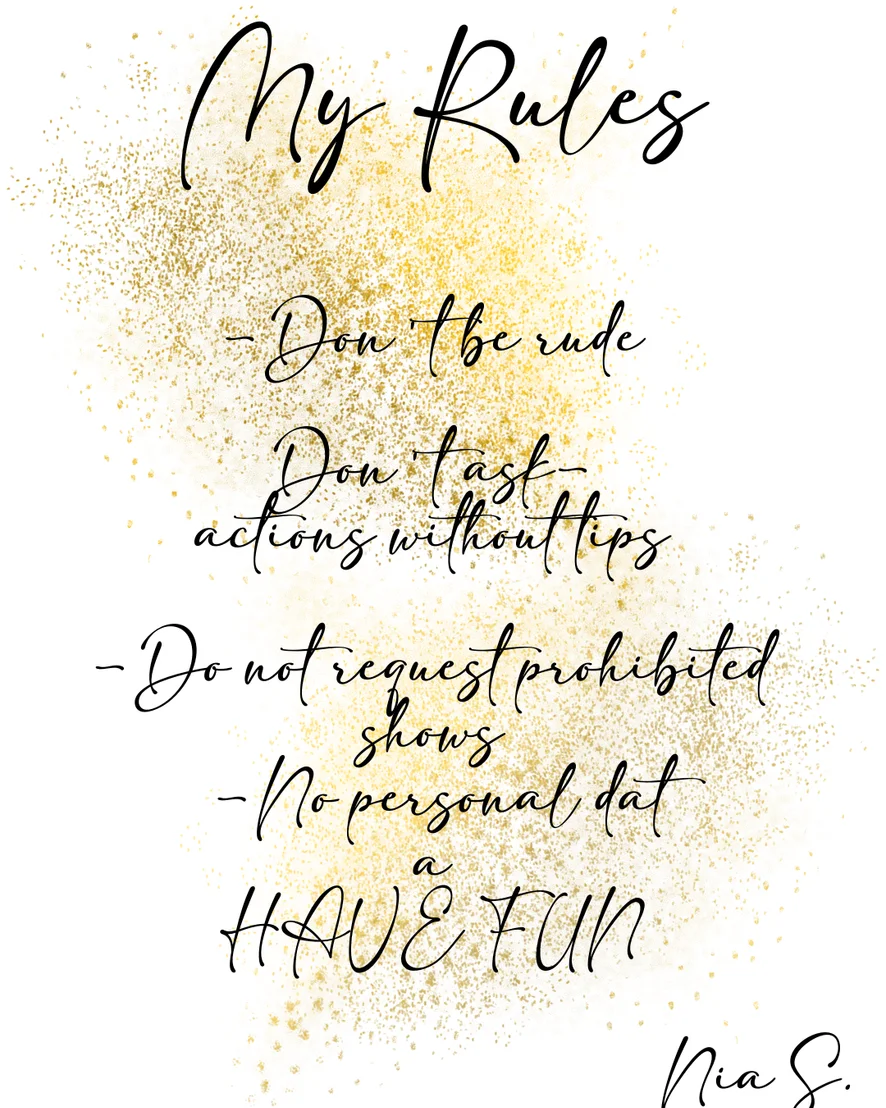 My Rules
- Don't be rude
Don't ask-
actions without tips
- Do not request prohibited
shows
- No personal dat
a
HAVE FUN
Nia S.